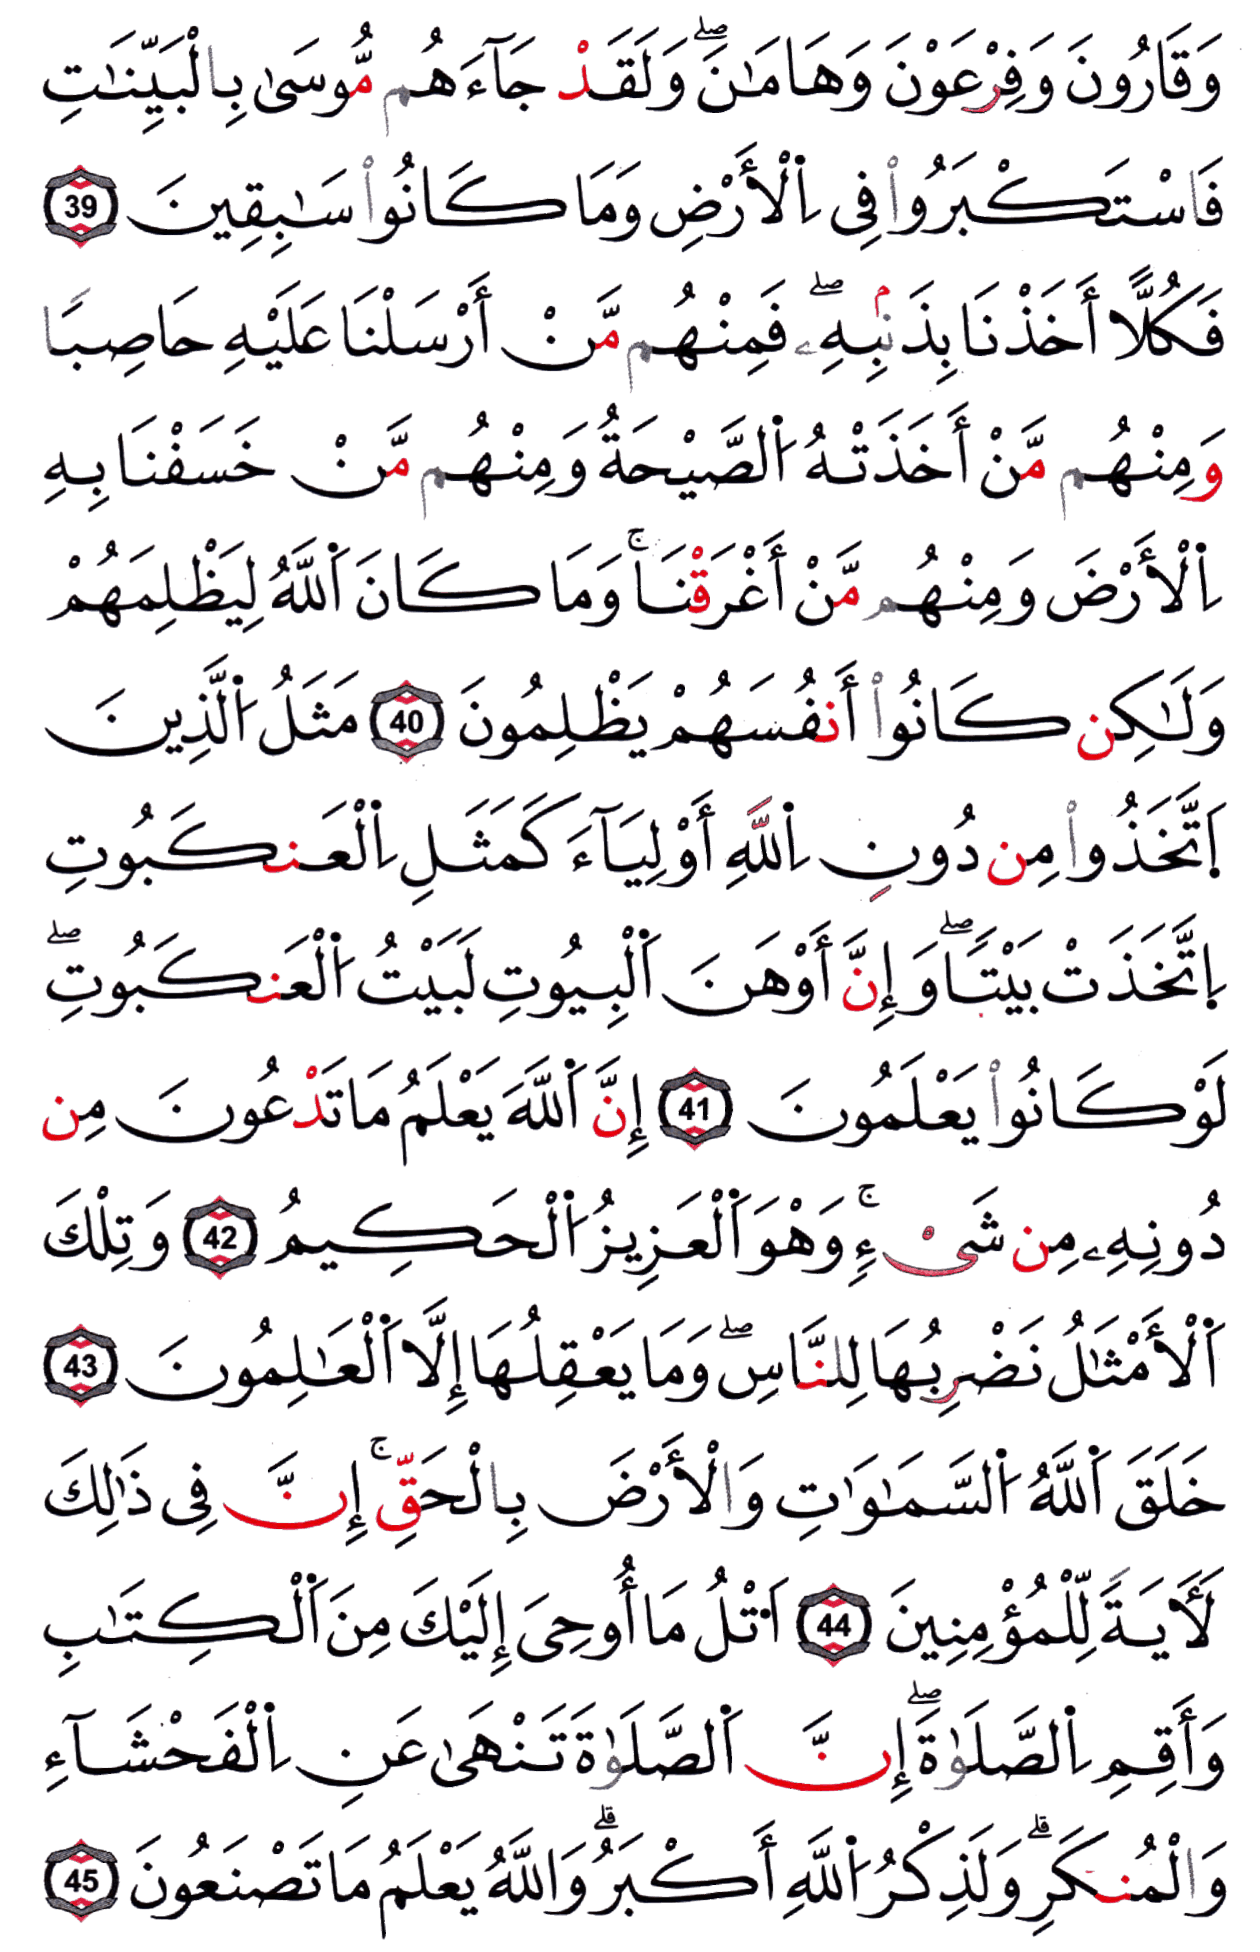 وَقَارُونَ وَفِرْعَوْنَ وَهَامَٰنَۖ وَلَقَدْ جَآءَهُم مُّوسَىٰ بِالْبَيِّنَٰتِ
فَاسْتَكْبَرُواْ فِى اِ۬لْأَرْضِ وَمَا كَانُواْ سَٰبِقِينَ 39
فَكُلًّا أَخَذْنَا بِذَنۢبِهِۦۖ فَمِنْهُم مَّنْ أَرْسَلْنَا عَلَيْهِ حَاصِبًا
وَمِنْهُم مَّنْ أَخَذَتْهُ اُ۬لصَّيْحَةُ وَمِنْهُم مَّنْ خَسَفْنَا بِهِ
اِ۬لْأَرْضَ وَمِنْهُم مَّنْ أَغْرَقْنَاۚ وَمَا كَانَ اَ۬للَّهُ لِيَظْلِمَهُمْ
وَلَٰكِن كَانُواْ أَنفُسَهُمْ يَظْلِمُونَ 40 مَثَلُ اُ۬لَّذِينَ
اَ۪تَّخَذُواْ مِن دُونِ اِ۬للَّهِ أَوْلِيَآءَ كَمَثَلِ اِ۬لْعَنكَبُوتِ
اِ۪تَّخَذَتْ بَيْتًاۖ وَإِنَّ أَوْهَنَ اَ۬لْبِيُوتِ لَبَيْتُ اُ۬لْعَنكَبُوتِۖ
لَوْ كَانُواْ يَعْلَمُونَ 41 إِنَّ اَ۬للَّهَ يَعْلَمُ مَا تَدْعُونَ مِن
دُونِهِۦ مِن شَىْءٍۚ وَهْوَ اَ۬لْعَزِيزُ اُ۬لْحَكِيمُ 42 وَتِلْكَ
اَ۬لْأَمْثَٰلُ نَضْرِبُهَا لِلنَّاسِۖ وَمَا يَعْقِلُهَا إِلَّا اَ۬لْعَٰلِمُونَ 43
خَلَقَ اَ۬للَّهُ اُ۬لسَّمَٰوَٰتِ وَالْأَرْضَ بِالْحَقِّۚ إِنَّ فِى ذَٰلِكَ
لَأٓيَةً لِّلْمُؤْمِنِينَ 44 اَ۟تْلُ مَا أُوحِىَ إِلَيْكَ مِنَ اَ۬لْكِتَٰبِ
وَأَقِمِ اِ۬لصَّلَوٰةَۖ إِنَّ اَ۬لصَّلَوٰةَ تَنْهَىٰ عَنِ اِ۬لْفَحْشَآءِ
وَالْمُنكَرِۗ وَلَذِكْرُ اُ۬للَّهِ أَكْبَرُۗ وَاللَّهُ يَعْلَمُ مَا تَصْنَعُونَ 45